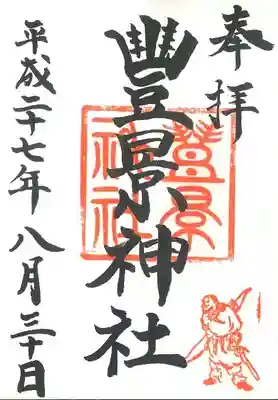 奉拝
豐景神社
豊景
神社
平成二十七年八月三十日